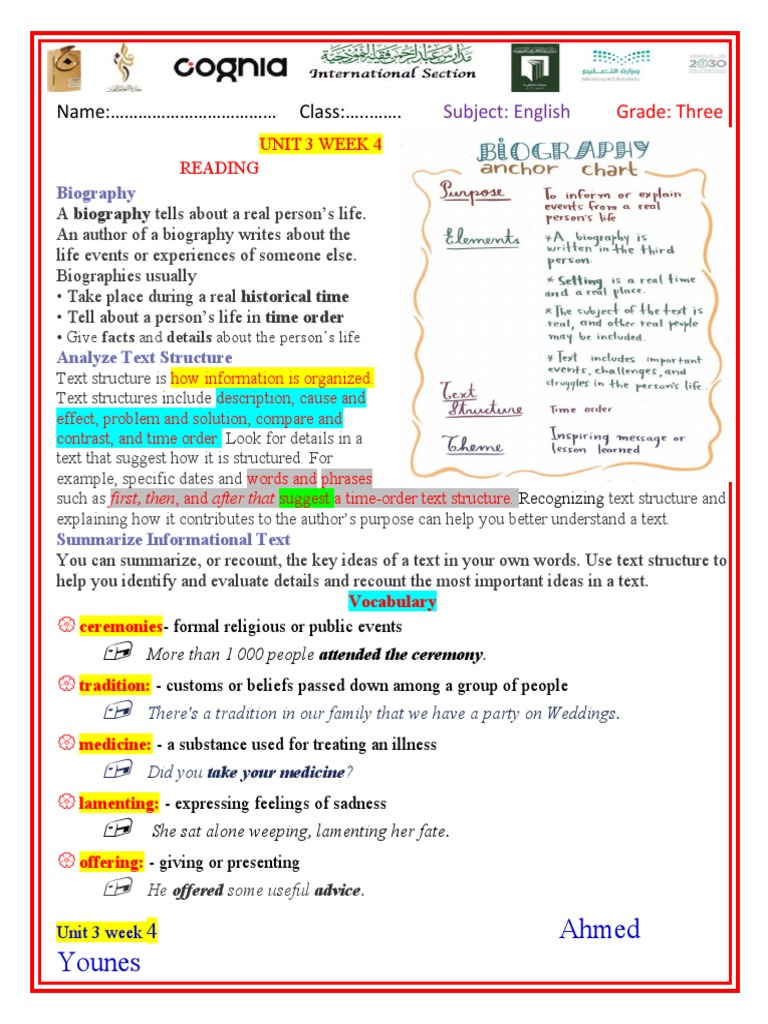 cognia
مدارس عبدالرحمن فقيه النموذجية
International Section
وزارة التعليم
Ministry of Education
2030
Name:……………………………… Class:…………. Subject: English Grade: Three
UNIT 3 WEEK 4
READING
Biography
A biography tells about a real person's life.
An author of a biography writes about the
life events or experiences of someone else.
Biographies usually
• Take place during a real historical time
• Tell about a person's life in time order
• Give facts and details about the person's life
Analyze Text Structure
Text structure is how information is organized.
Text structures include description, cause and
effect, problem and solution, compare and
contrast, and time order. Look for details in a
text that suggest how it is structured. For
example, specific dates and words and phrases
such as first, then, and after that suggest a time-order text structure. Recognizing text structure and
explaining how it contributes to the author's purpose can help you better understand a text.
BIOGRAPHY
anchor chart
Purpose
To inform or explain
events from a real
person's life
Elements
*A biography is
written in the third
person.
* Setting is a real time
and a real place.
*The subject of the text is
real, and other real people
may be included.
*Text includes important
events, challenges, and
struggles in the person's life.
Text
Structure
Time order
Theme
Inspiring message or
lesson learned
Summarize Informational Text
You can summarize, or recount, the key ideas of a text in your own words. Use text structure to
help you identify and evaluate details and recount the most important ideas in a text.
Vocabulary
ceremonies- formal religious or public events
More than 1 000 people attended the ceremony.
tradition: - customs or beliefs passed down among a group of people
There's a tradition in our family that we have a party on Weddings.
medicine: - a substance used for treating an illness
Did you take your medicine?
lamenting: - expressing feelings of sadness
She sat alone weeping, lamenting her fate.
offering: - giving or presenting
He offered some useful advice.
Unit 3 week 4 Ahmed
Younes